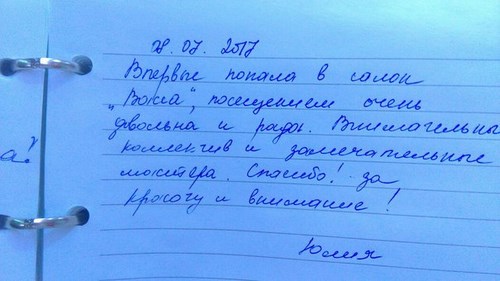 28.07.2017
Впервые попала в салон
„Вожа", посещением очень
довольна и рада. Внимательный
коллектив и замечательные
мастера. Спасибо! за
красоту и внимание!
Юлия
а!